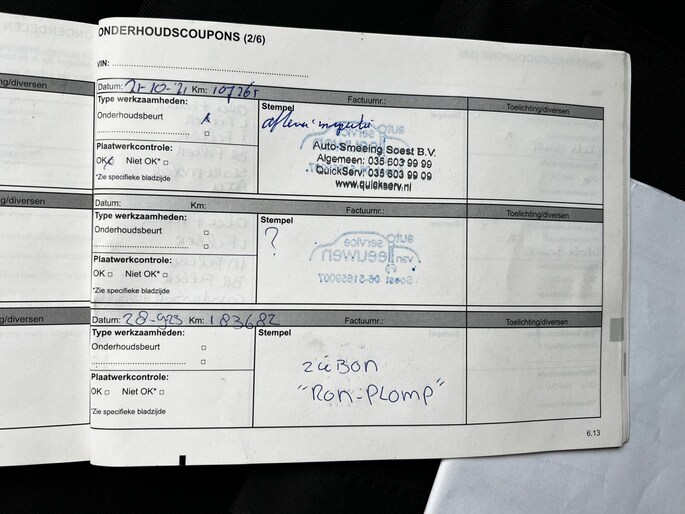 ONDERHOUDSCOUPONS (2/6)
VIN:
ng/diversen
Datum: 21-10-'21 Km: 107265
Factuurnr.:
Toelichting/diversen
Type werkzaamheden:
Onderhoudsbeurt
Stempel
aflever inspectie
Auto-Smeeing Soest B.V.
Algemeen: 035 603 99 99
QuickServ: 035 603 99 09
www.quickserv.nl
Plaatwerkcontrole:
OK Niet OK*
*Zie specifieke bladzijde
g/diversen
Datum: Km:
Factuurnr.:
Toelichting/diversen
Type werkzaamheden:
Onderhoudsbeurt
Stempel
?
auto service
van Leeuwen
Soest 06-51659007
Plaatwerkcontrole:
OK Niet OK*
*Zie specifieke bladzijde
g/diversen
Datum: 28-923 Km: 183682
Factuurnr.:
Toelichting/diversen
Type werkzaamheden:
Onderhoudsbeurt
Stempel
zieBON
"Ron-PLOMP"
Plaatwerkcontrole:
OK Niet OK*
*Zie specifieke bladzijde
6.13